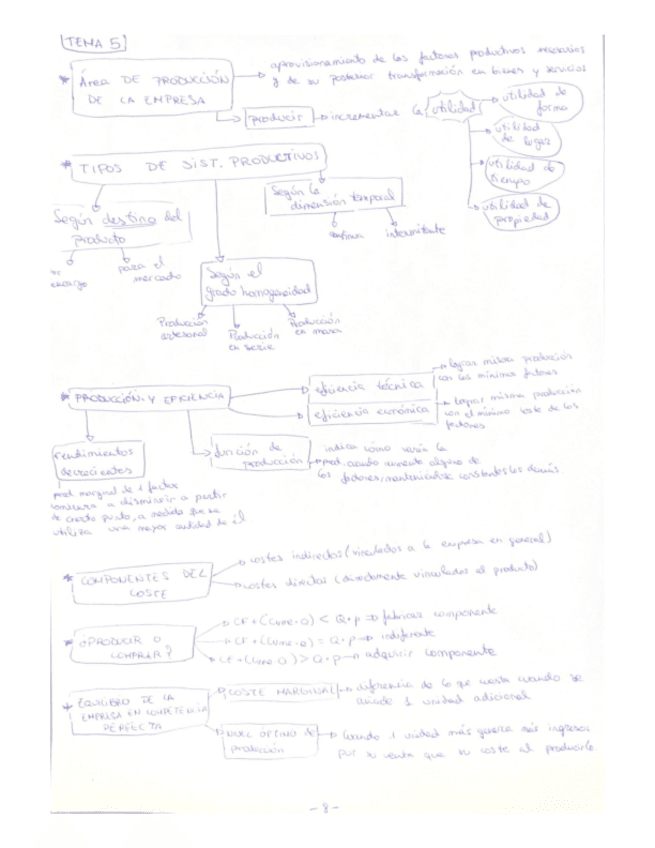 TEMA 5
* ÁREA DE PRODUCCIÓN
DE LA EMPRESA
aprovisionamiento de los factores productivos necesarios
y de su posterior transformación en bienes y servicios
producir incrementar la utilidad
utilidad de
forma
utilidad
de lugar
utilidad de
tiempo
utilidad de
propiedad
* TIPOS DE SIST. PRODUCTIVOS
Según destino del
producto
encargo
para el
mercado
Según la
dimensión temporal
continua intermitente
Según el
grado homogeneidad
Producción
artesanal
Producción
en serie
Producción
en masa
* PRODUCCIÓN Y EFICIENCIA
eficiencia técnica
lograr misma producción
con los mínimos factores
eficiencia económica
lograr misma producción
con el mínimo coste de los
factores
rendimientos
decrecientes
prod. marginal de 1 factor
comienza a disminuir a partir
de cierto punto, a medida que se
utiliza una mayor cantidad de él
función de
producción
indica cómo varía la
prod. cuando aumenta alguno de
los factores, manteniéndose constantes los demás
* COMPONENTES DEL
COSTE
costes indirectos (vinculados a la empresa en general)
costes directos (directamente vinculados al producto)
* ¿PRODUCIR O
COMPRAR?
CF + (Cvme·Q) < Q·p fabricar componente
CF + (Cvme·Q) = Q·p indiferente
CF + (Cvme·Q) > Q·p adquirir componente
* EQUILIBRO DE LA
EMPRESA EN COMPETENCIA
PERFECTA
COSTE MARGINAL
diferencia de lo que cuesta cuando se
añade 1 unidad adicional
NIVEL ÓPTIMO de
producción
Cuando 1 unidad más genera más ingresos
por su venta que su coste al producirlo
- 8 -